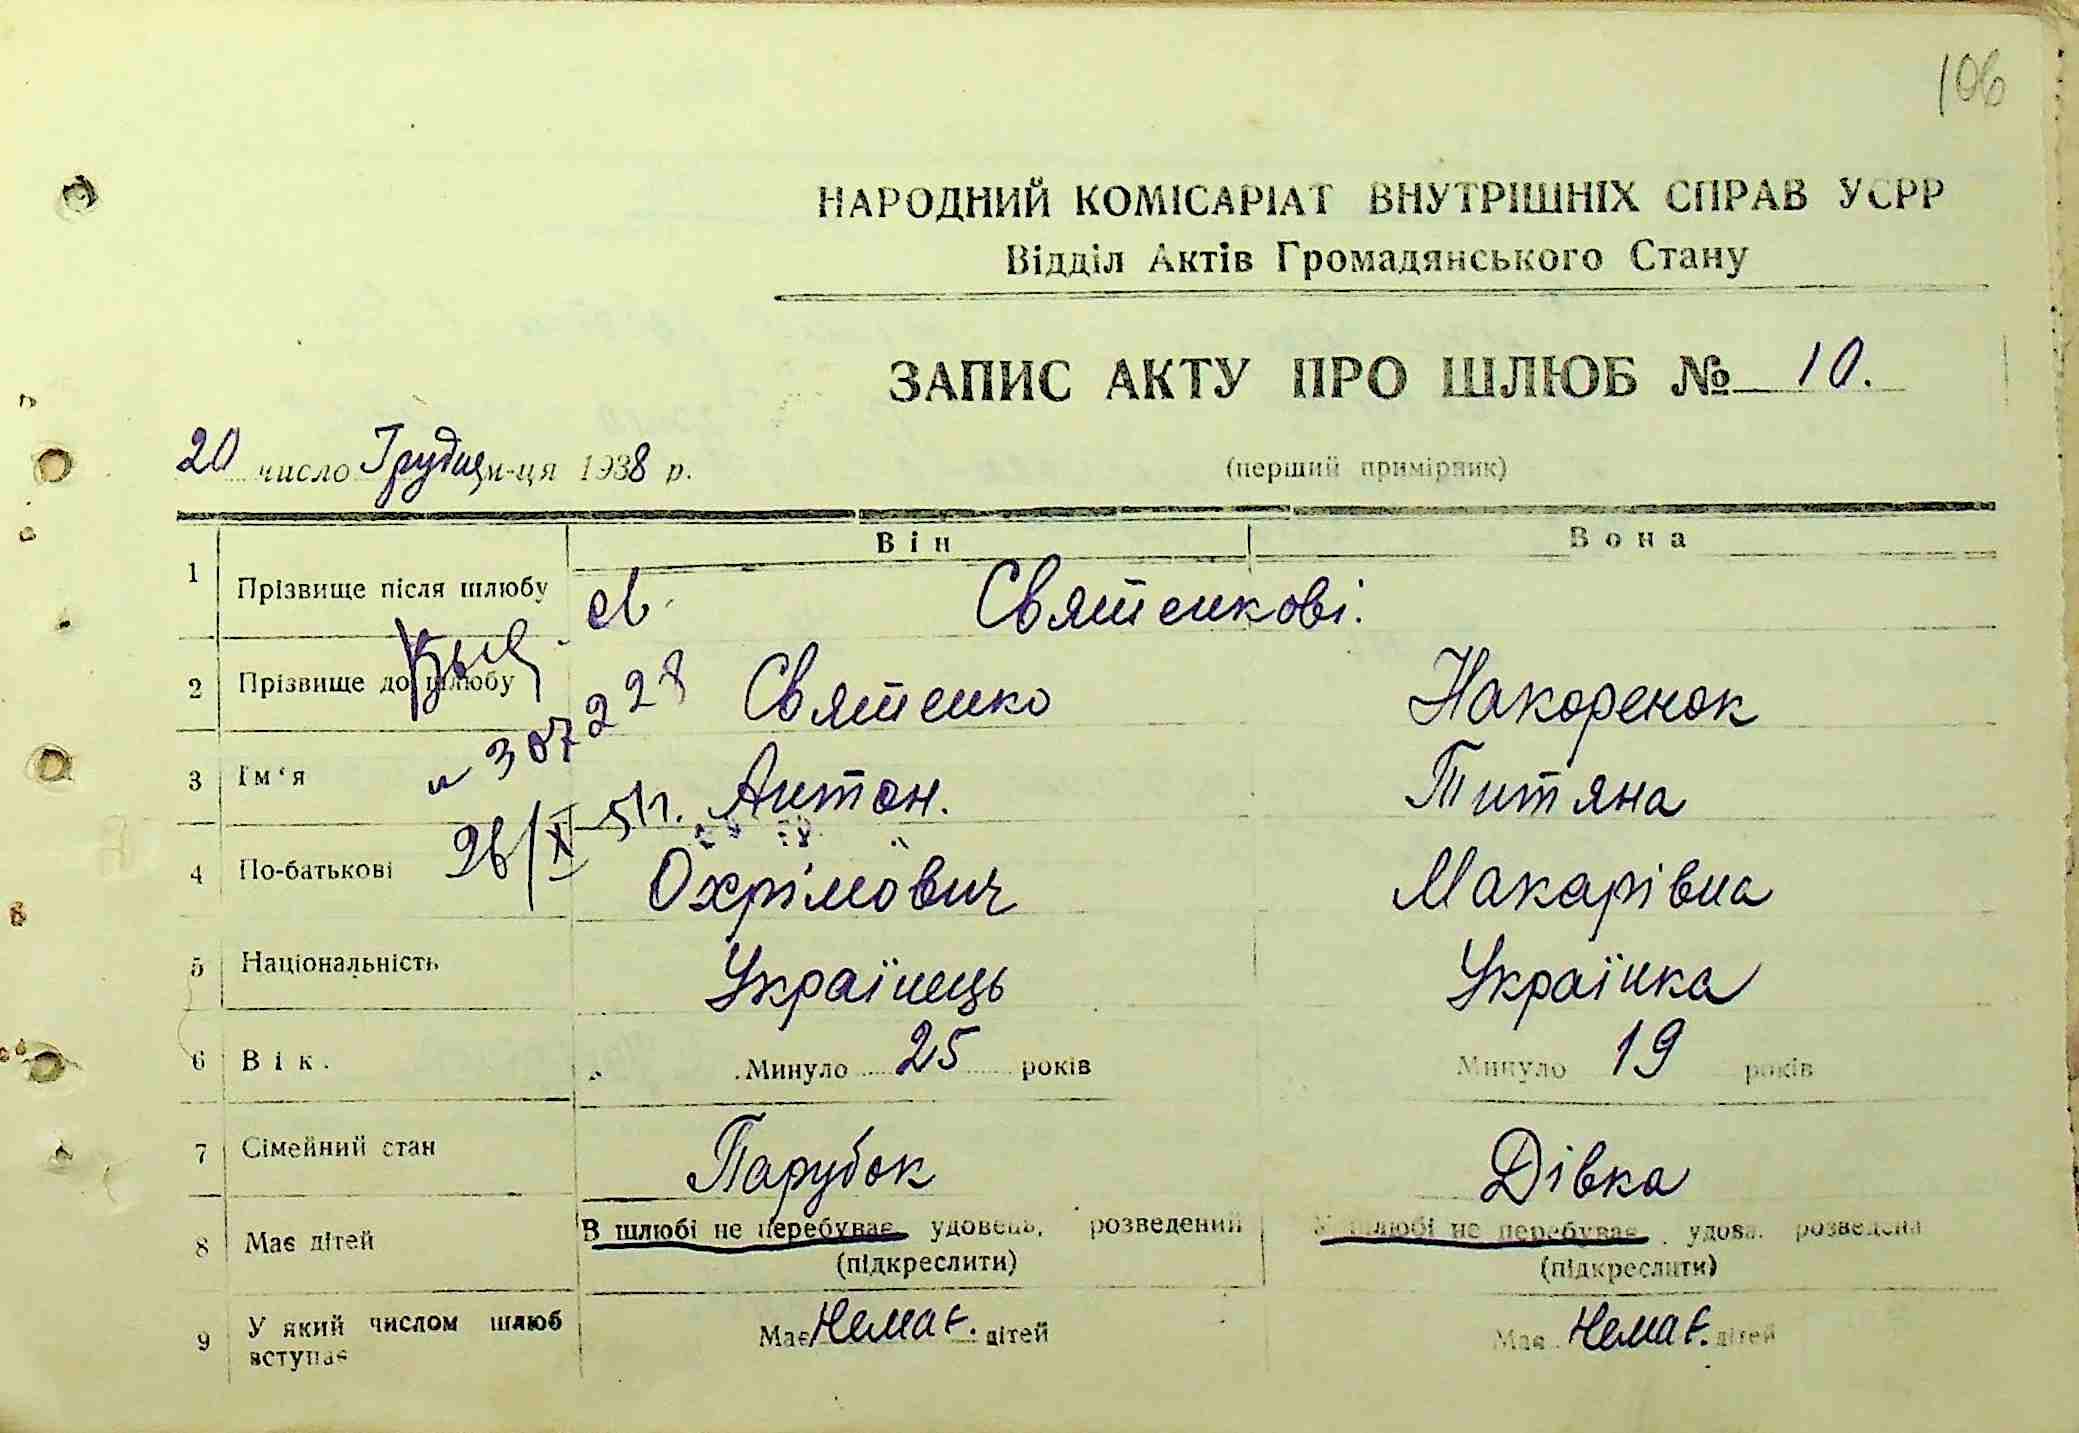 106
НАРОДНИЙ КОМІСАРІАТ ВНУТРІШНІХ СПРАВ УСРР
Відділ Актів Громадянського Стану
ЗАПИС АКТУ ПРО ШЛЮБ № 10.
20 число Грудня м-ця 1938 р.
(перший примірник)
Він Вона
1 Прізвище після шлюбу Святенкові.
2 Прізвище до шлюбу Святенко Накоренок
307228
3 Ім‘я Антон. Титяна
26/XI-51г.
4 По-батькові Охрімович Макарівна
5 Національність Українець Українка
6 Вік. Минуло 25 років Минуло 19 років
7 Сімейний стан Парубок Дівка
8 Має дітей В шлюбі не перебуває, удовець, розведений У шлюбі не перебуває, удова, розведена
(підкреслити) (підкреслити)
9 У який числом шлюб вступає Має Немає. дітей Має Немає. дітей